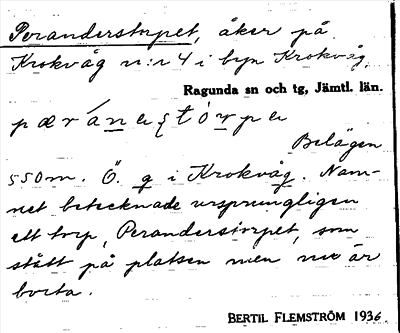 Peranderstorpet, åker på
Krokvåg n:r 4 i byn Krokvåg,
Ragunda sn och tg, Jämtl. län.
Belägen
550 m. Ö. g i Krokvåg. Nam-
net betecknade ursprungligen
ett torp, Peranderstorpet, som
stått på platsen men nu är
borta.
BERTIL FLEMSTRÖM 1936.